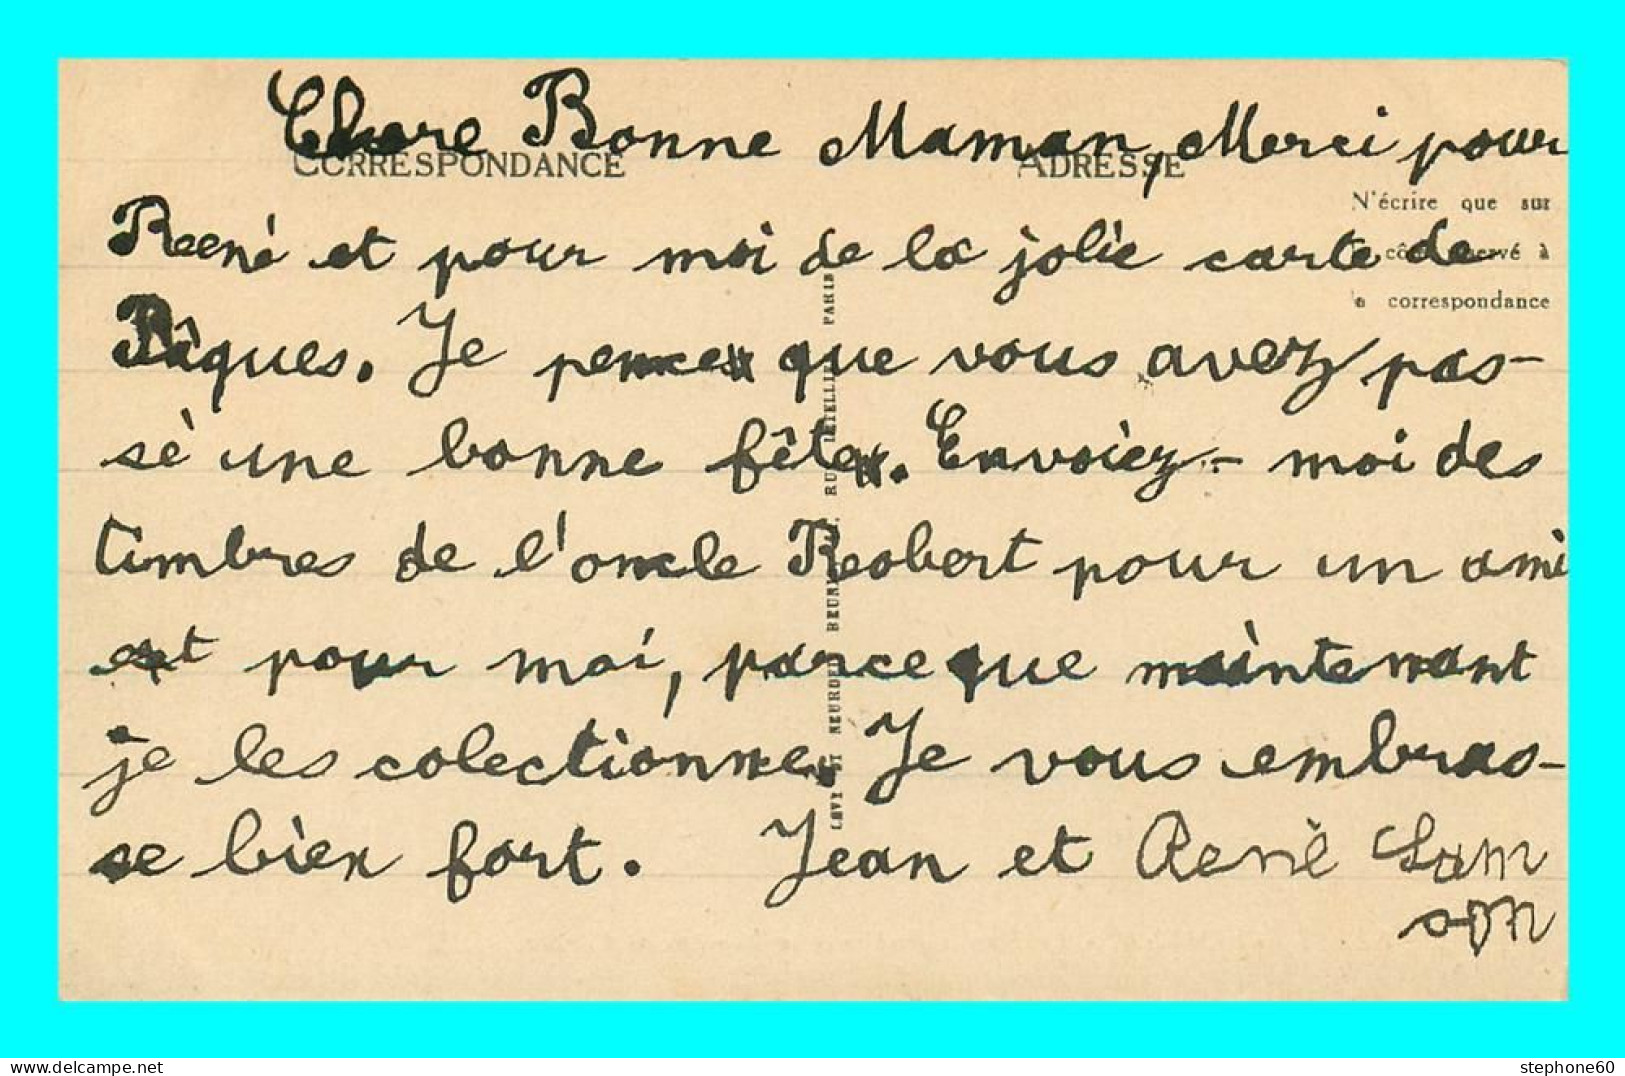 Chere Bonne Maman, Merci pour
CORRESPONDANCE
ADRESSE
N'écrire que sur
à
correspondance
René et pour moi de la jolie carte de
Pâques. Je pence que vous avez pas-
sé une bonne fête. Envoiez-moi des
timbres de l'oncle Robert pour un ami
et pour moi, parce que maintenant
je les colectionne. Je vous embras-
se bien fort. Jean et René Sam
son
LEVY ET NEURDEIN
PARIS
www.delcampe.net
stephone60